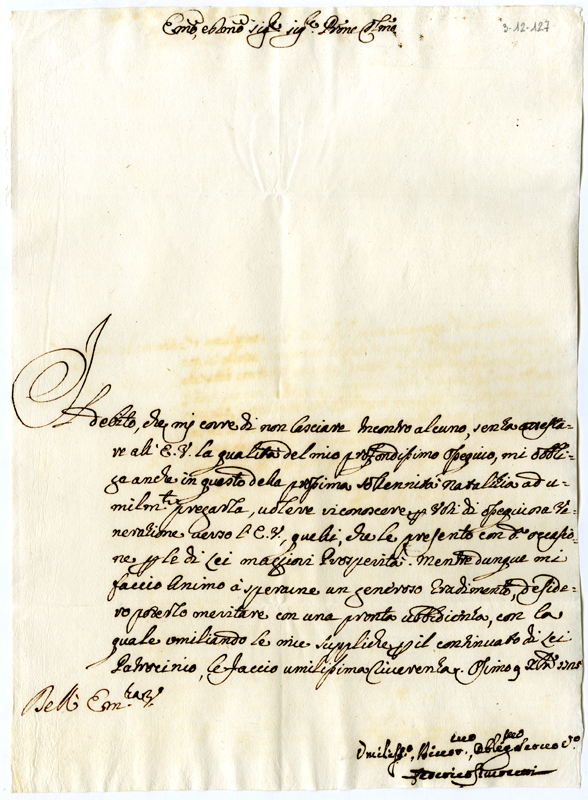 Emo, e Rmo Sig.re Sig.re Prone Colmo
3-12-127
Il debito, che mi corre di non lasciare Incontro alcuno, senza attesta-
re all' E.V. la qualità del mio profondissimo Ossequio, mi obbli-
ga anche in questo della prossima solennità natalizia ad u-
milm.te pregarla, volere riconoscere p Voti di ossequiosa Ve-
neratione verso l'E.V., quelli, che le presento con d.a occasio-
ne p le di Lei maggiori Prosperità. Mentre dunque mi
faccio Animo à sperarne un generoso Gradimento, deside-
ro poterlo meritare con una pronta ubbidienza, con la
quale umiliando le mie suppliche p il continuato di Lei
Patrocinio, le faccio umilissima Riverenza. Osimo 9 Xbre
Dell' Em.za V.
Umiliss.o, Divot.mo, Obblig.mo Servo V.o
Federico